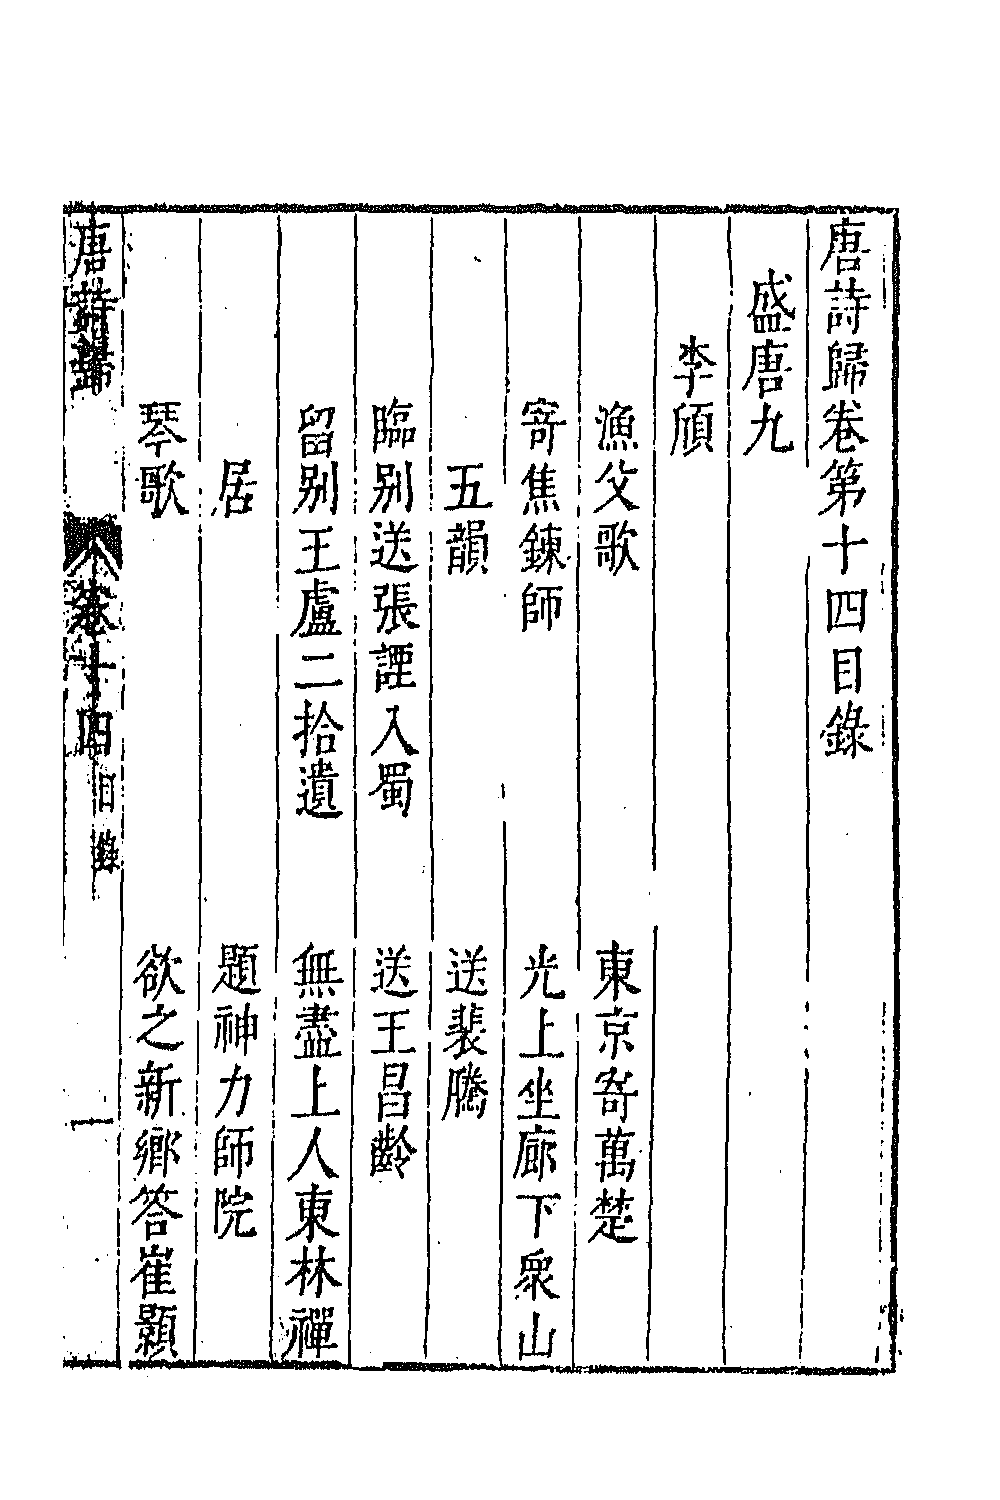 唐詩歸卷第十四目錄
盛唐九
李頎
漁父歌　東京寄萬楚
寄焦鍊師　光上坐廊下衆山
五韻　送裴騰
臨別送張諲入蜀　送王昌齡
留別王盧二拾遺　無盡上人東林禪
居　題神力師院
琴歌　欲之新鄉答崔顥
唐詩歸　卷十四　目錄　一